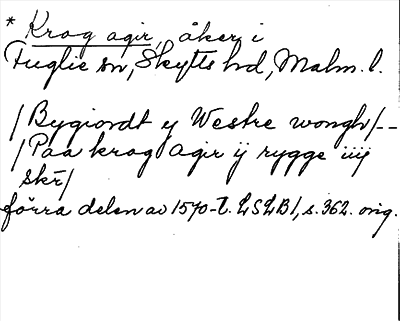 * Krog agir, åker i
Fuglie sn, Skytts hd, Malm. l.
/Bygiordt ey Westre wongh/--
/Paa krog agir ij rygge iiij
skr/
förra delen av 1570-t. LSLB1, s. 362. orig.